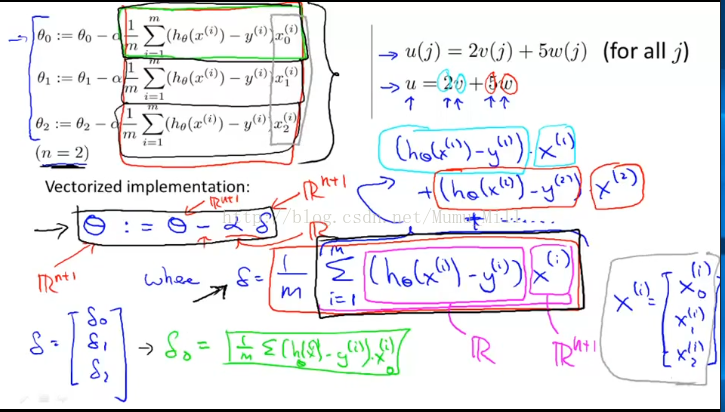 θ₀ := θ₀ − α (1/m) Σ_{i=1}^{m} (h_θ(x^{(i)}) − y^{(i)}) x₀^{(i)}
θ₁ := θ₁ − α (1/m) Σ_{i=1}^{m} (h_θ(x^{(i)}) − y^{(i)}) x₁^{(i)}
θ₂ := θ₂ − α (1/m) Σ_{i=1}^{m} (h_θ(x^{(i)}) − y^{(i)}) x₂^{(i)}
(n = 2)
→ u(j) = 2v(j) + 5w(j) (for all j)
→ u = 2v + 5w
(h_θ(x^{(1)}) − y^{(1)}) · x^{(1)}
+ (h_θ(x^{(2)}) − y^{(2)}) · x^{(2)}
+ ......
Vectorized implementation:
ℝ^{n+1} ℝ^{n+1}
→ θ := θ − α δ
ℝ^{n+1} ℝ
where δ = (1/m) Σ_{i=1}^{m} (h_θ(x^{(i)}) − y^{(i)}) x^{(i)}
ℝ ℝ^{n+1}
x^{(i)} = [x₀^{(i)} x₁^{(i)} x₂^{(i)}]
δ = [δ₀ δ₁ δ₂] → δ₀ = (1/m) Σ (h_θ(x^{(i)}) − y^{(i)}) · x₀^{(i)}